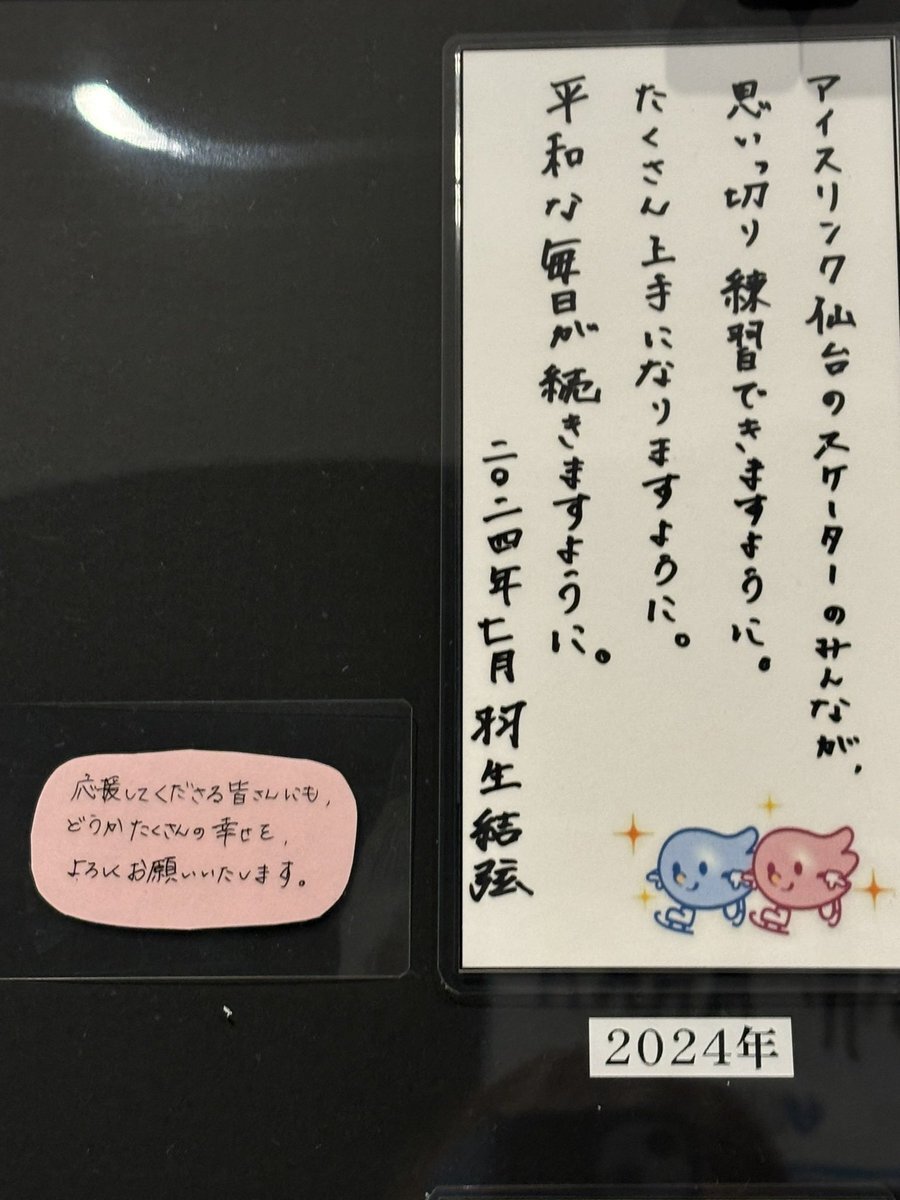 アイスリンク仙台のスケーターのみんなが、
思いっ切り練習できますように。
たくさん上手になりますように。
平和な毎日が続きますように。
二〇二四年七月 羽生結弦
応援してくださる皆さんにも、
どうかたくさんの幸せを、
よろしくお願いいたします。
2024年